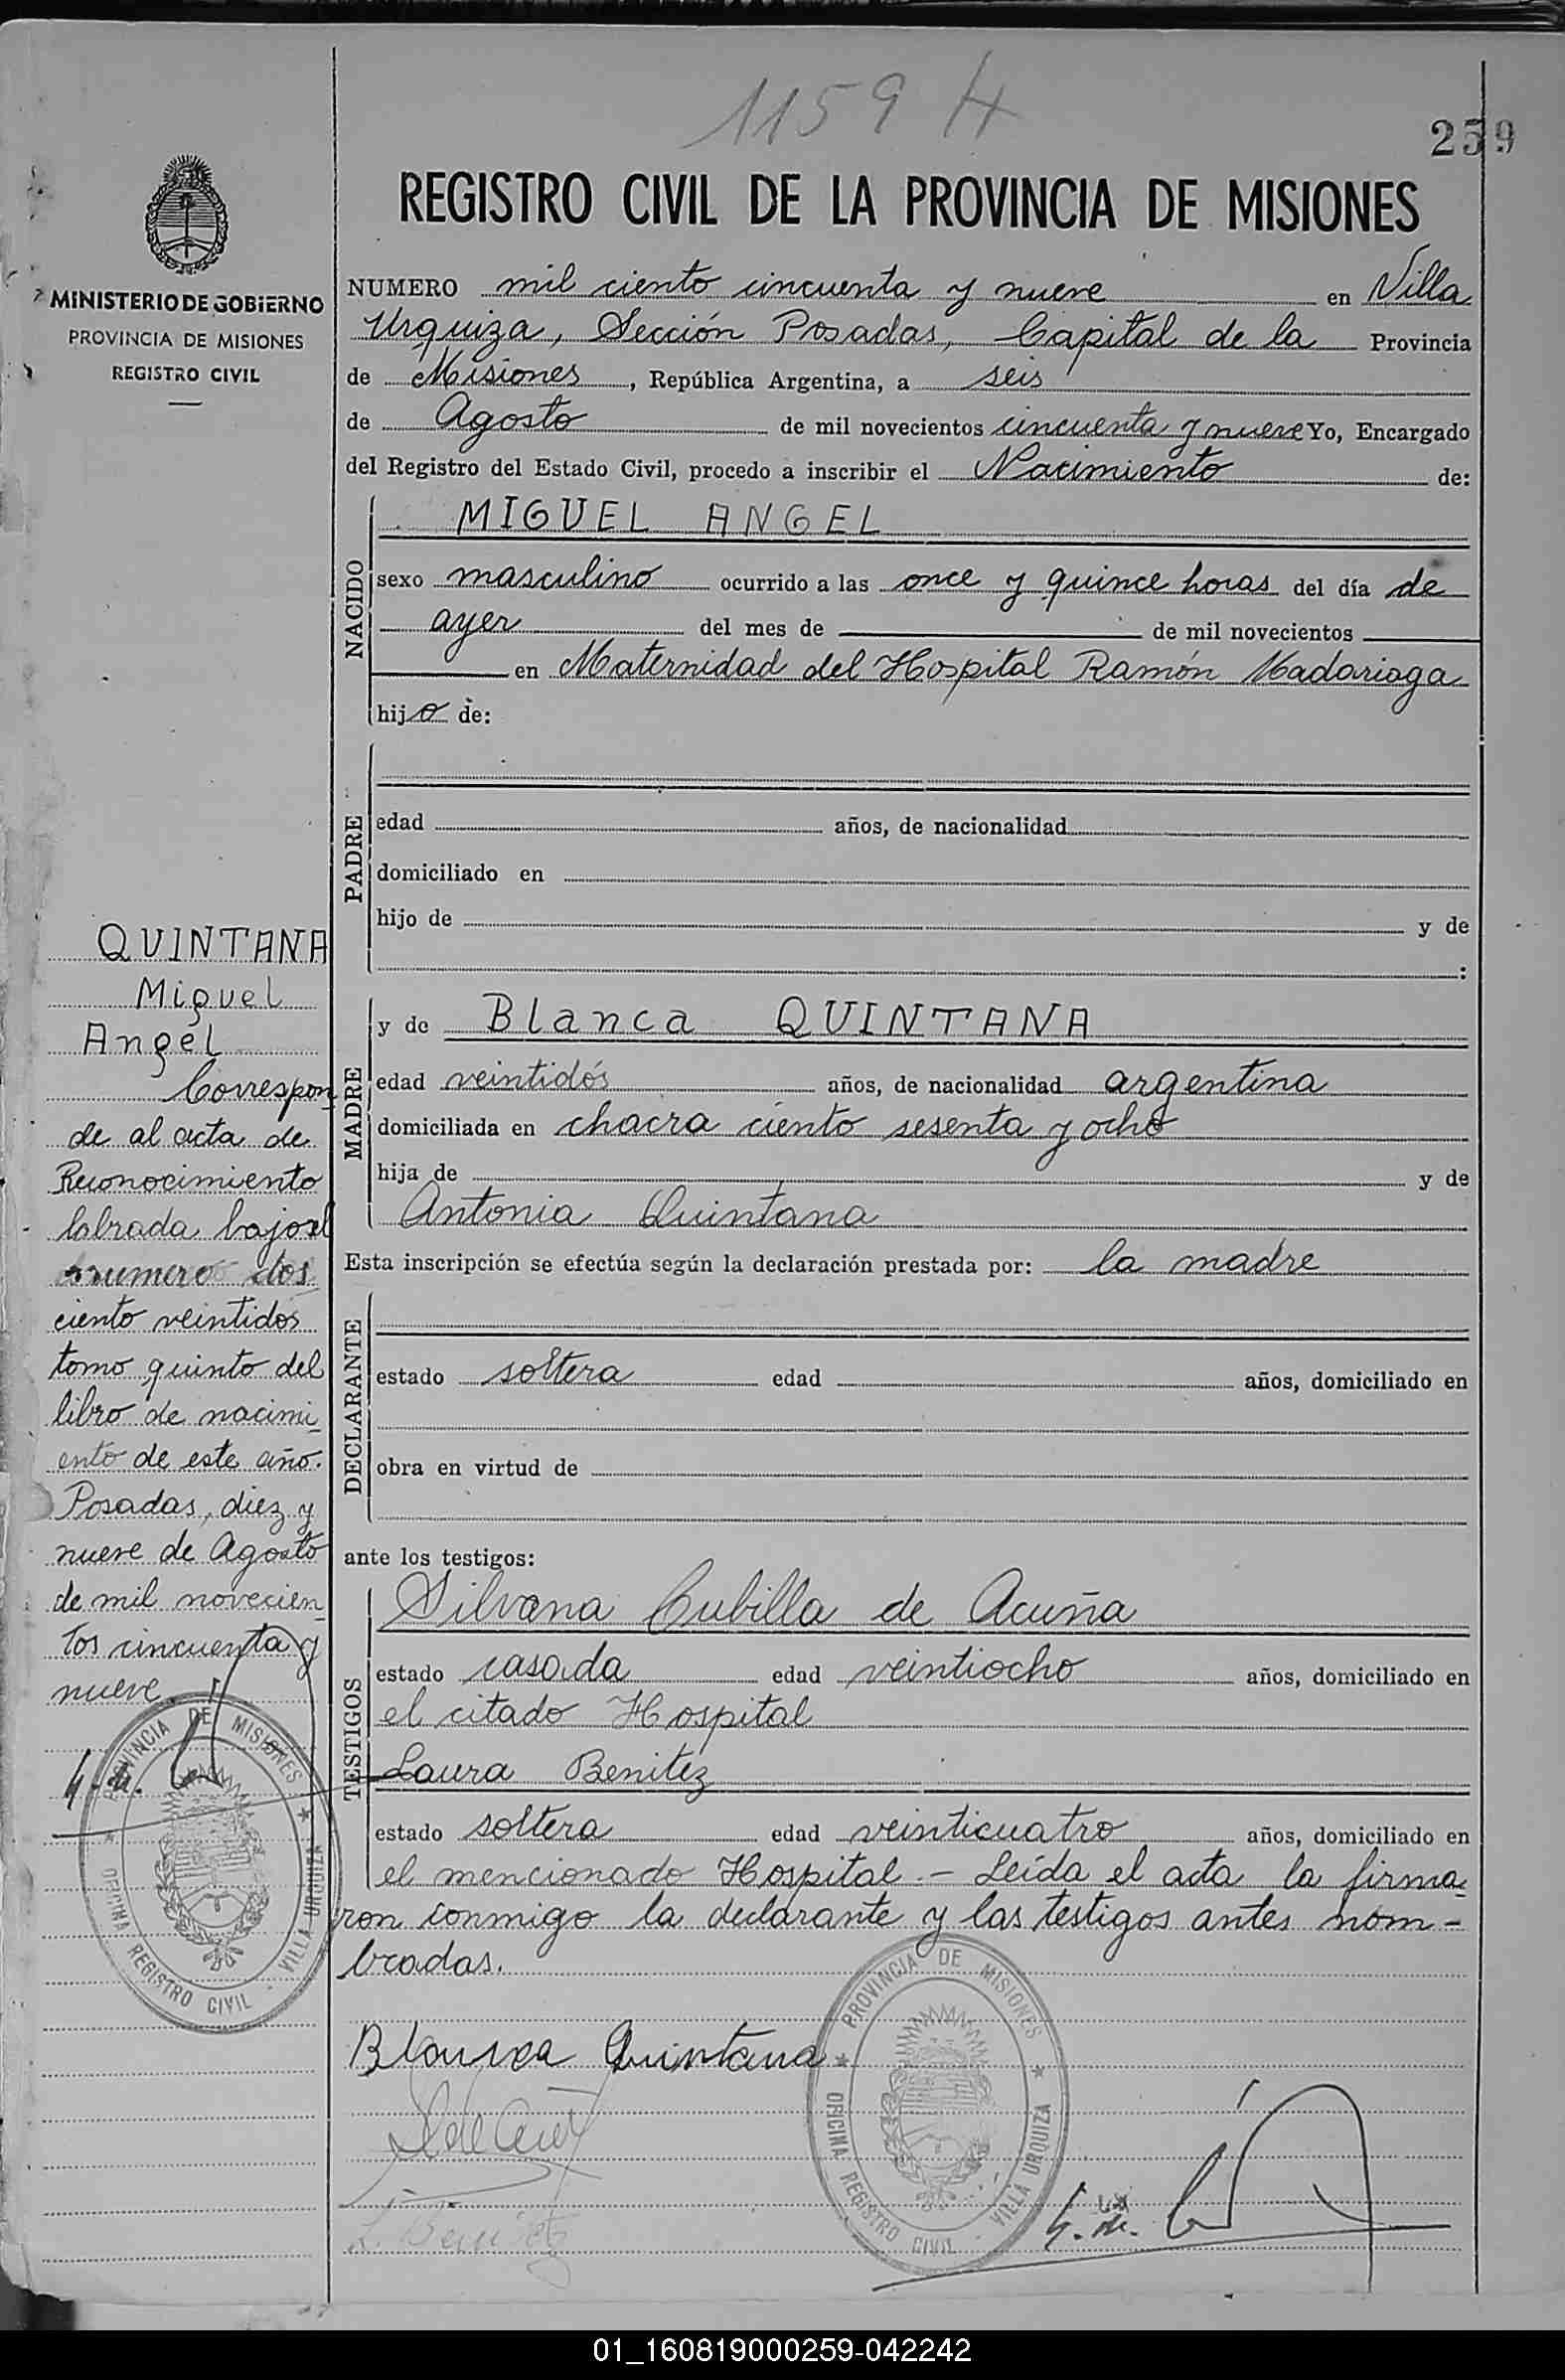 1159 H
259
REGISTRO CIVIL DE LA PROVINCIA DE MISIONES
MINISTERIO DE GOBIERNO
PROVINCIA DE MISIONES
REGISTRO CIVIL
NUMERO mil ciento cincuenta y nueve en Villa
Urquiza, Sección Posadas, Capital de la Provincia
de Misiones, República Argentina, a seis
de Agosto de mil novecientos cincuenta y nueve Yo, Encargado
del Registro del Estado Civil, procedo a inscribir el Nacimiento de:
NACIDO
MIGUEL ANGEL
sexo masculino ocurrido a las once y quince horas del día de
ayer del mes de de mil novecientos
en Maternidad del Hospital Ramón Madariaga
hijo de:
PADRE
edad años, de nacionalidad
domiciliado en
hijo de y de
:
MADRE
y de Blanca QUINTANA
edad veintidós años, de nacionalidad argentina
domiciliada en chacra ciento sesenta y ocho
hija de y de
Antonia Quintana
Esta inscripción se efectúa según la declaración prestada por: la madre
DECLARANTE
estado soltera edad años, domiciliado en
obra en virtud de
ante los testigos:
TESTIGOS
Silvana Cubilla de Acuña
estado casada edad veintiocho años, domiciliado en
el citado Hospital
Laura Benitez
estado soltera edad veinticuatro años, domiciliado en
el mencionado Hospital.- Leída el acta la firma
ron conmigo la declarante y las testigos antes nom-
bradas.
Blanca Quintana
L. Benitez
PROVINCIA DE MISIONES
OFICINA REGISTRO CIVIL - VILLA URQUIZA
QUINTANA
Miguel
Angel
Correspon
de al acta de
Reconocimiento
labrada bajo el
numero dos
ciento veintidos
tomo quinto del
libro de nacimi
ento de este año.
Posadas, diez y
nueve de Agosto
de mil novecien
tos cincuenta y
nueve.
PROVINCIA DE MISIONES
OFICINA REGISTRO CIVIL - VILLA URQUIZA
01_160819000259-042242